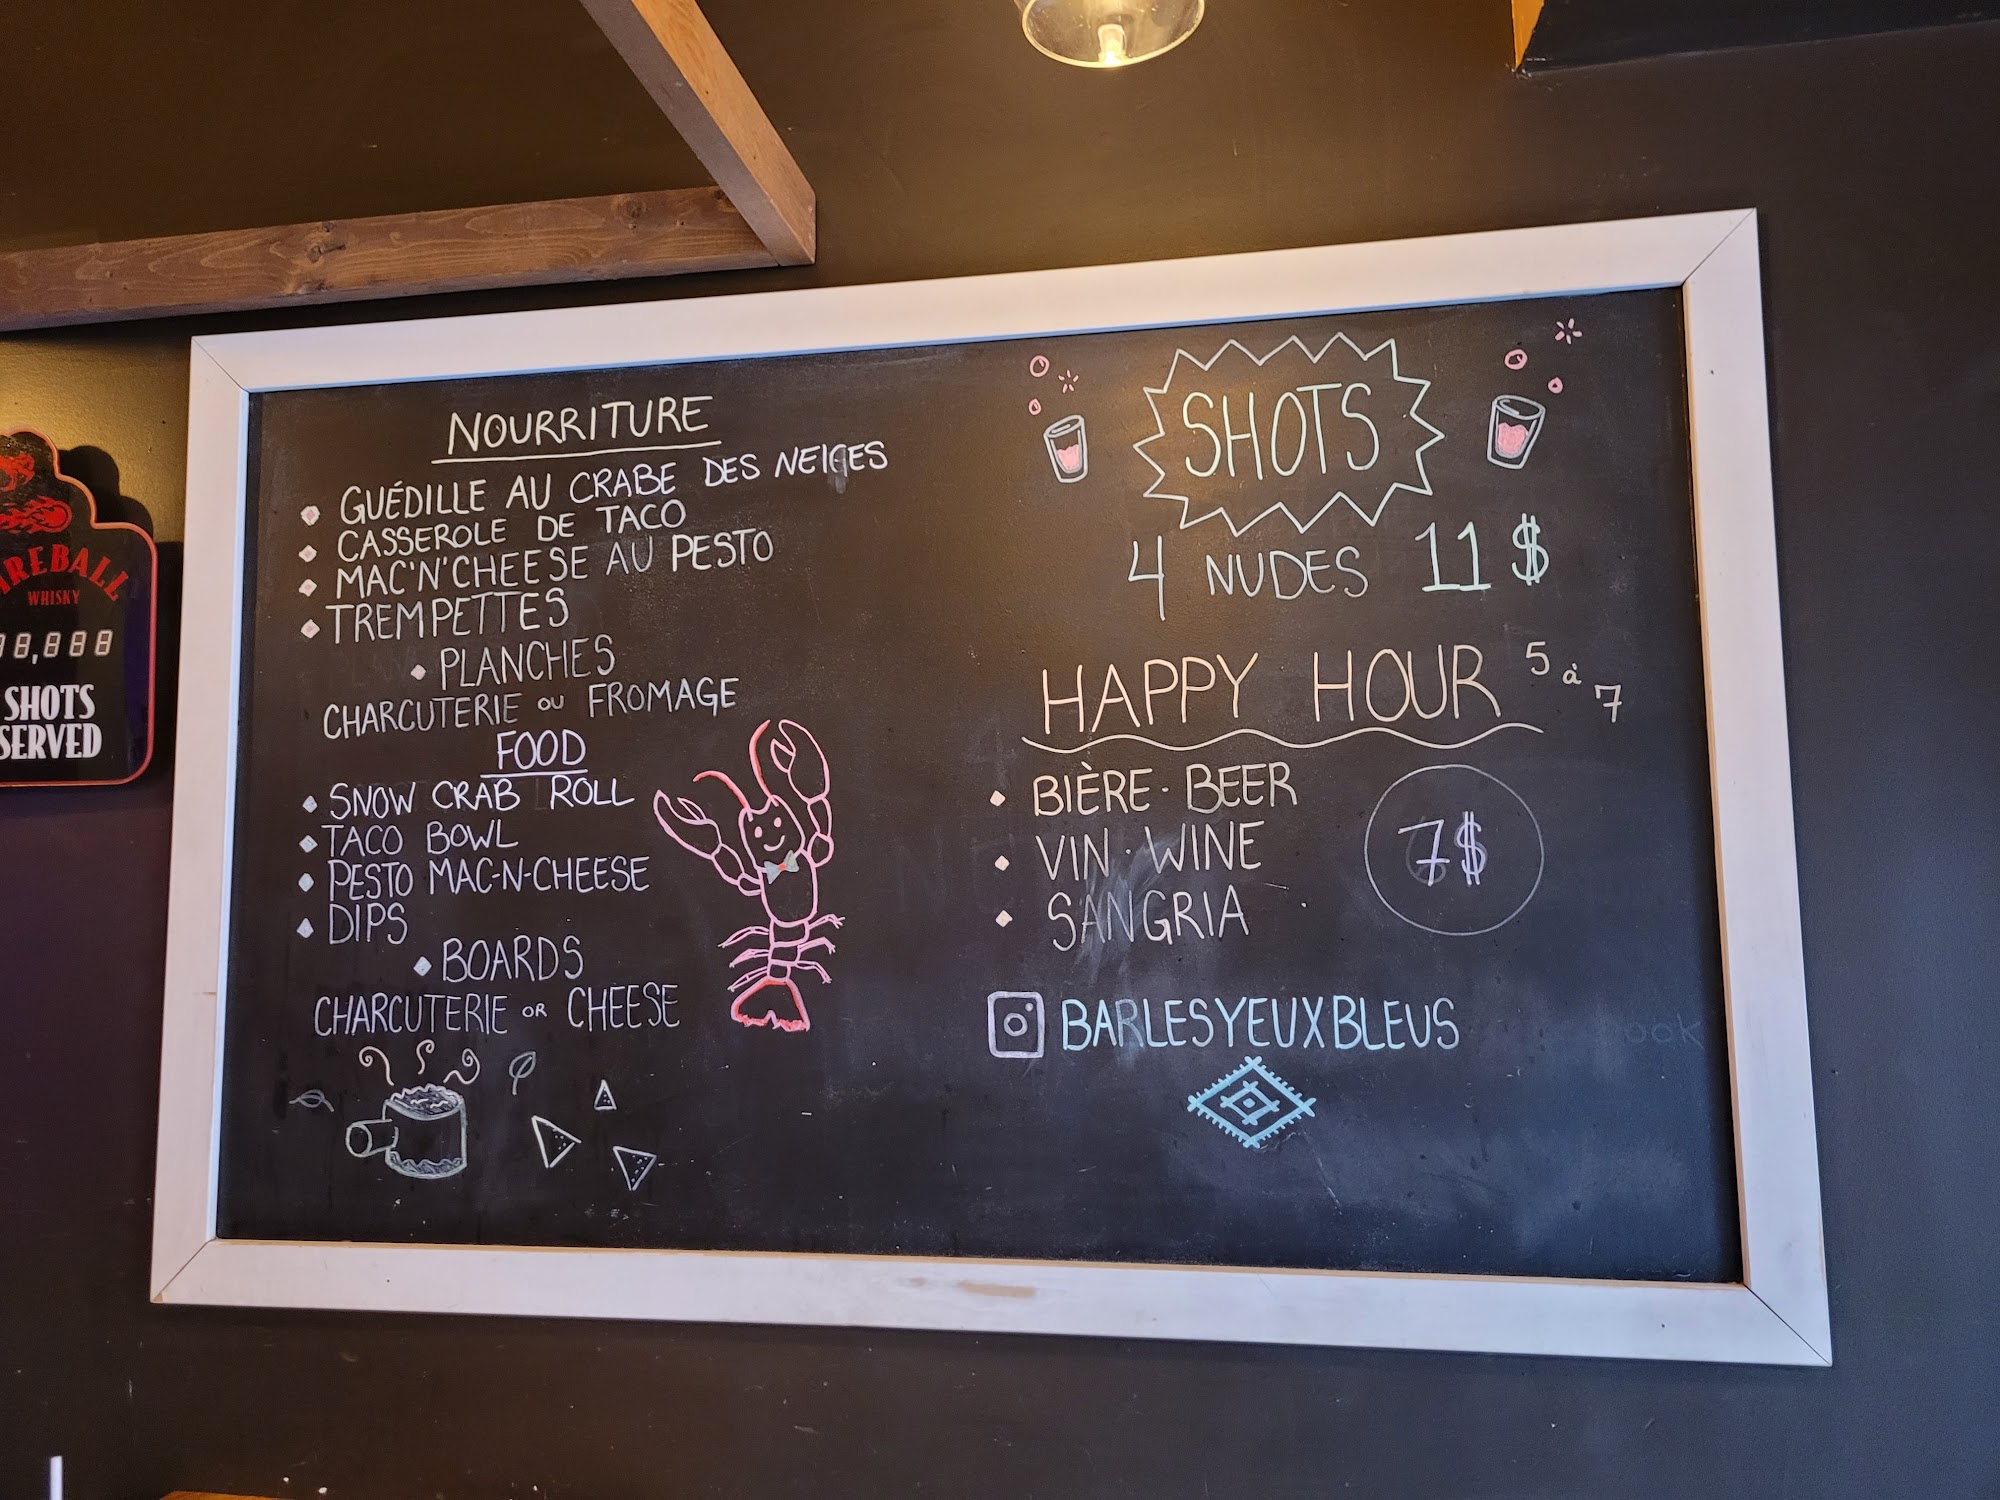 NOURRITURE
GUÉDILLE AU CRABE DES NEIGES
CASSEROLE DE TACO
MAC'N'CHEESE AU PESTO
TREMPETTES
PLANCHES
CHARCUTERIE OU FROMAGE
FOOD
SNOW CRAB ROLL
TACO BOWL
PESTO MAC-N-CHEESE
DIPS
BOARDS
CHARCUTERIE OR CHEESE
SHOTS
4 NUDES 11$
HAPPY HOUR 5 à 7
BIÈRE · BEER
VIN · WINE
SANGRIA
7$
BARLESYEUXBLEUS
WHISKY
SHOTS
SERVED